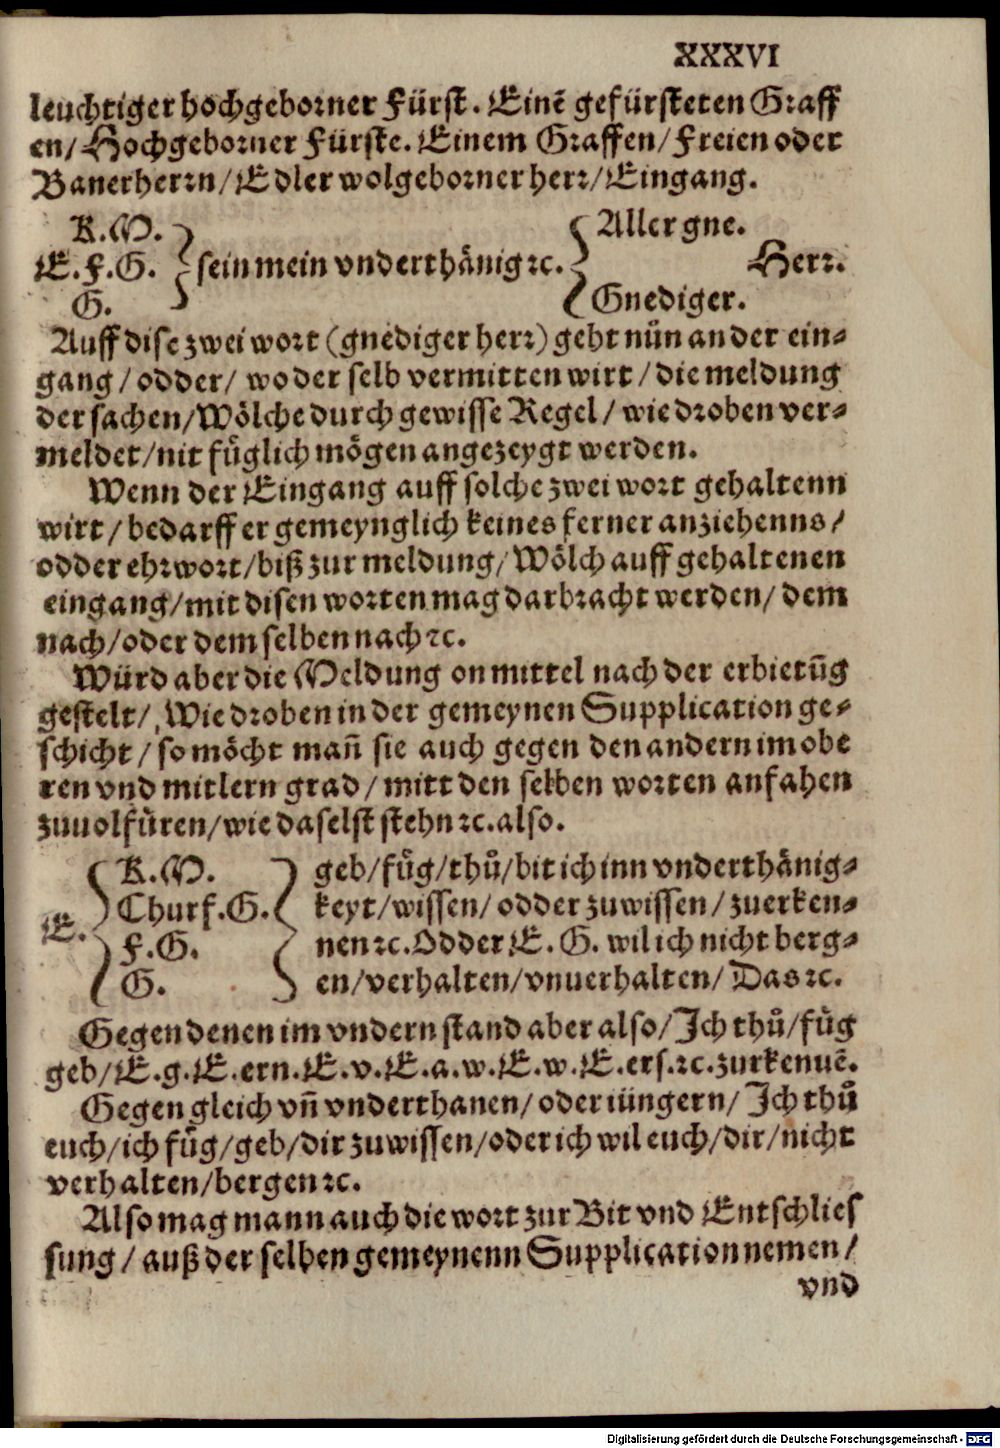 XXXVI
leuchtiger hochgeborner Fürst. Einē gefürsteten Graff
en/ Hochgeborner Fürste. Einem Graffen/ Freien oder
Banerherrn/ Edler wolgeborner herr/ Eingang.
K.M. Aller gne.
E.F.G. sein mein vnderthänig ꝛc. Herr.
G. Gnediger.
Auff dise zwei wort (gnediger herr) geht nůn an der ein⸗
gang / odder/ wo der selb vermitten wirt / die meldung
der sachen/ Wölche durch gewisse Regel / wie droben ver⸗
meldet/ nit füglich mögen angezeygt werden.
Wenn der Eingang auff solche zwei wort gehaltenn
wirt / bedarff er gemeynglich keines ferner anziehenns /
odder ehrwort/ biß zur meldung/ Wölch auff gehaltenen
eingang/ mit disen worten mag darbracht werden/ dem
nach/ oder dem selben nach ꝛc.
Würd aber die Meldung on mittel nach der erbietūg
gestelt/ Wie droben in der gemeynen Supplication ge⸗
schicht / so möcht mañ sie auch gegen den andern im obe
ren vnd mitlern grad / mitt den selben worten anfahen
zuuolfüren/ wie daselst stehn ꝛc. also.
K.M. geb/ füg/ thů/ bit ich inn vnderthänig⸗
E. Churf.G. keyt/ wissen/ odder zuwissen / zuerken⸗
F.G. nen ꝛc. Odder E. G. wil ich nicht berg⸗
G. en/ verhalten/ vnuerhalten/ Das ꝛc.
Gegen denen im vndern stand aber also/ Ich thů/ füg
geb/ E.g.E.ern.E.v.E.a.w.E.w.E.ers.ꝛc. zurkenuē.
Gegen gleich vñ vnderthanen/ oder iüngern/ Ich thů
euch/ ich füg/ geb/ dir zuwissen/ oder ich wil euch/ dir/ nicht
verhalten/ bergen ꝛc.
Also mag mann auch die wort zur Bit vnd Entschlies
sung / auß der selben gemeynenn Supplication nemen /
vnd
Digitalisierung gefördert durch die Deutsche Forschungsgemeinschaft - DFG